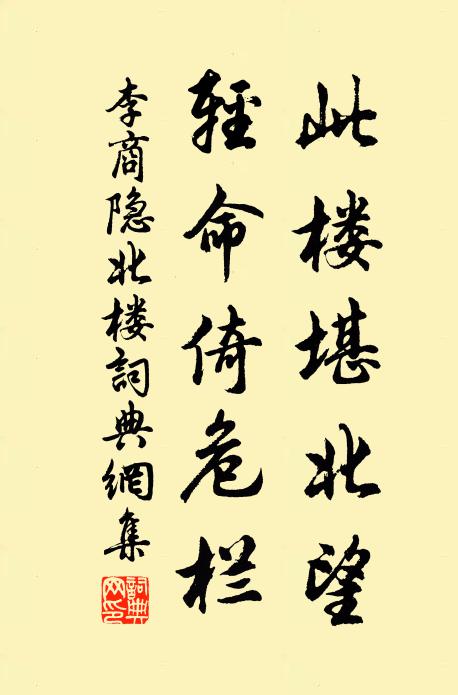 此楼堪北望
轻命倚危栏
李商隐北楼詞典網集
詞典网印